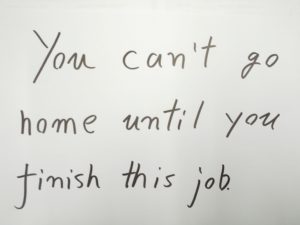 You can't go
home until you
finish this job.